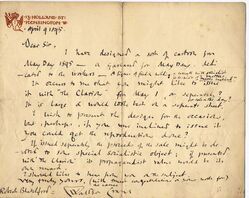 13 HOLLAND ST.
KENSINGTON
April 9 1895.
Dear Sir,
I have designed a sort of cartoon for
May Day 1895 — A Garland for May Day. dedi-
cated to the Workers —
It occurs to me that you might like to issue
it with the Clarion for May 1, or separately?
It is large & would look best as a separate sheet
I wish to present the design for the occasion,
but, perhaps, if you are inclined to issue it
you could get the reproduction done?
If issued separately the proceeds of the sale might be de-
voted to some special Socialistic object; if presented
with the Clarion its propagandist value would be it.
own reward.
I should like to hear from you on the subject.
Robert Blatchford
Walter Crane